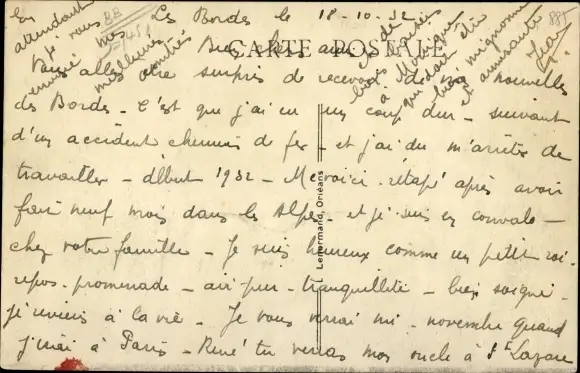 Les Bordes le 18-10-32
CARTE POSTALE
Bien chers amis
Vous allez être surpris de recevoir de nos nouvelles
des Bordes - C'est que j'ai eu un coup dur - suivant
d'un accident chemin de fer - et j'ai du m'arrêter de
travailler - début 1932 - Me voici rétapé après avoir
fait neuf mois dans les Alpes - et je suis en convalo -
chez votre famille - Je suis heureux comme un petit roi -
repos - promenade - air pur - tranquillité - bien soigné -
je reviens à la vie - Je vous verrai mi-novembre quand
j'irai à Paris - René tu verras mon oncle à St Lazare
En
attendant
je vous
envoie nos
meilleures
amitiés
à Monique
qui doit être
bien mignonne
et amusante
Jean
Lenormand, Orléans
88
885